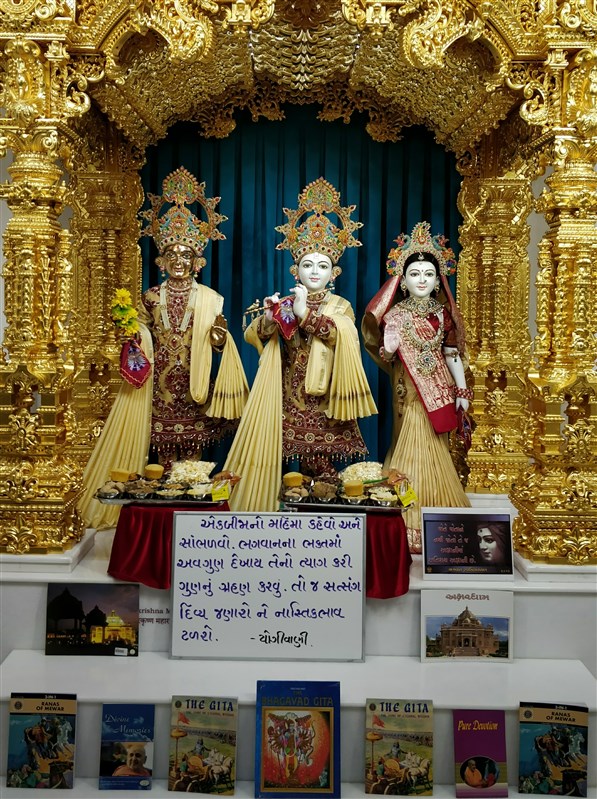 એકબીજાનો મહિમા કહેવો અને
સાંભળવો. ભગવાનના ભક્તમાં
અવગુણ દેખાય તેનો ત્યાગ કરી
ગુણનું ગ્રહણ કરવું. તો જ સત્સંગ
દિવ્ય જણાશે ને નાસ્તિકભાવ
ટળશે. - યોગીવાણી.
અક્ષરધામ
RANAS
OF MEWAR
Divine
Memories
THE GITA
BHAGAVAD GITA
THE GITA
Pure Devotion
RANAS
OF MEWAR